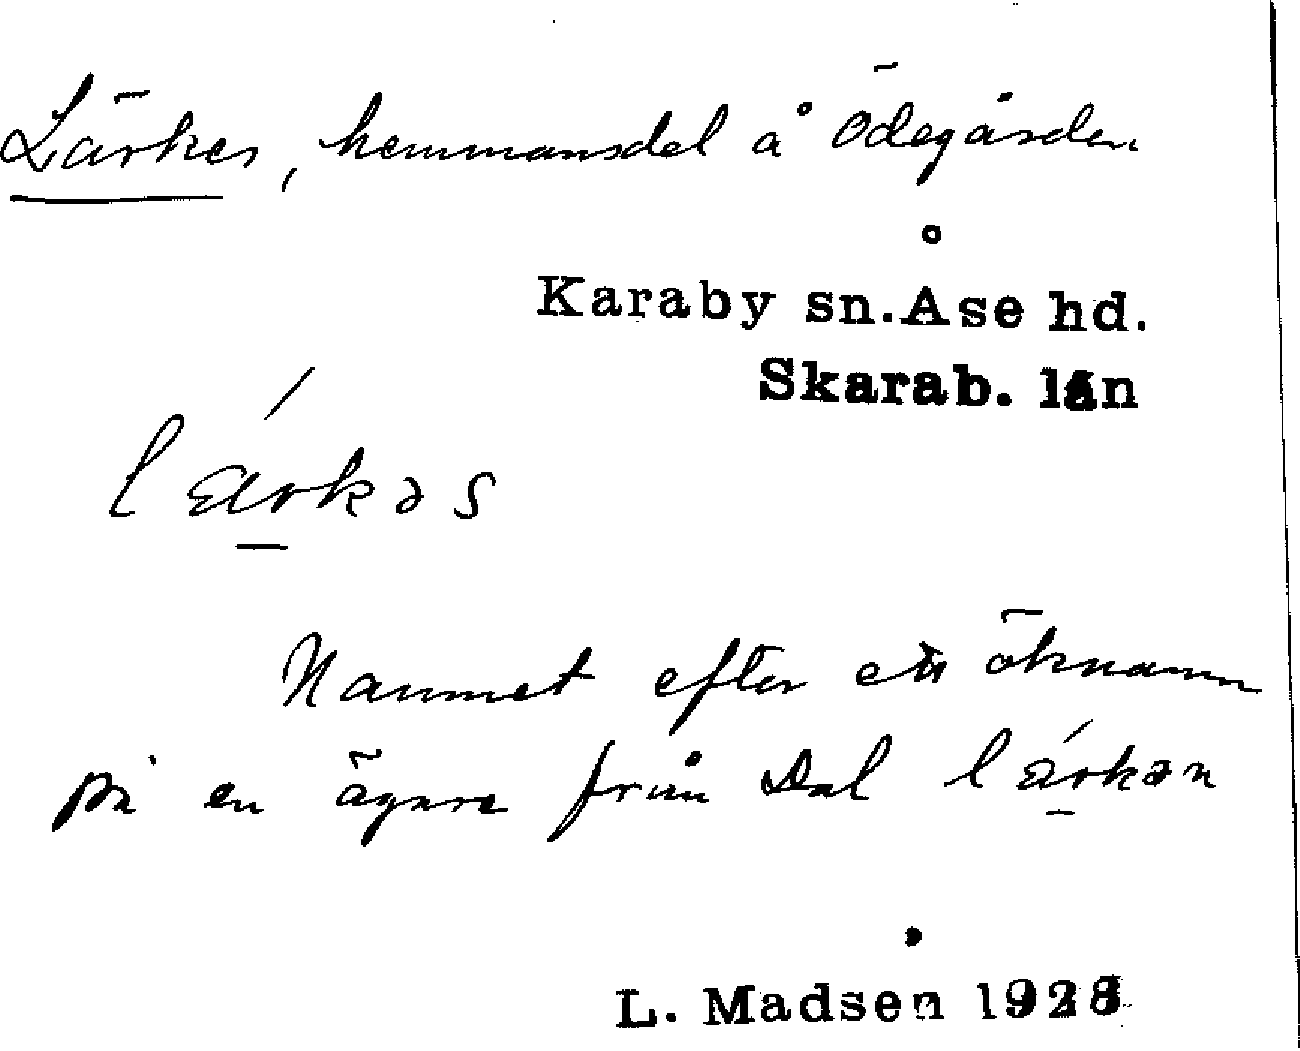 Lärkes, hemmansdel å Ödegården
Karaby sn. Åse hd.
Skarab. län
lärkəs
Namnet efter ett öknamn
på en ägare från Dal lärkən
L. Madsen